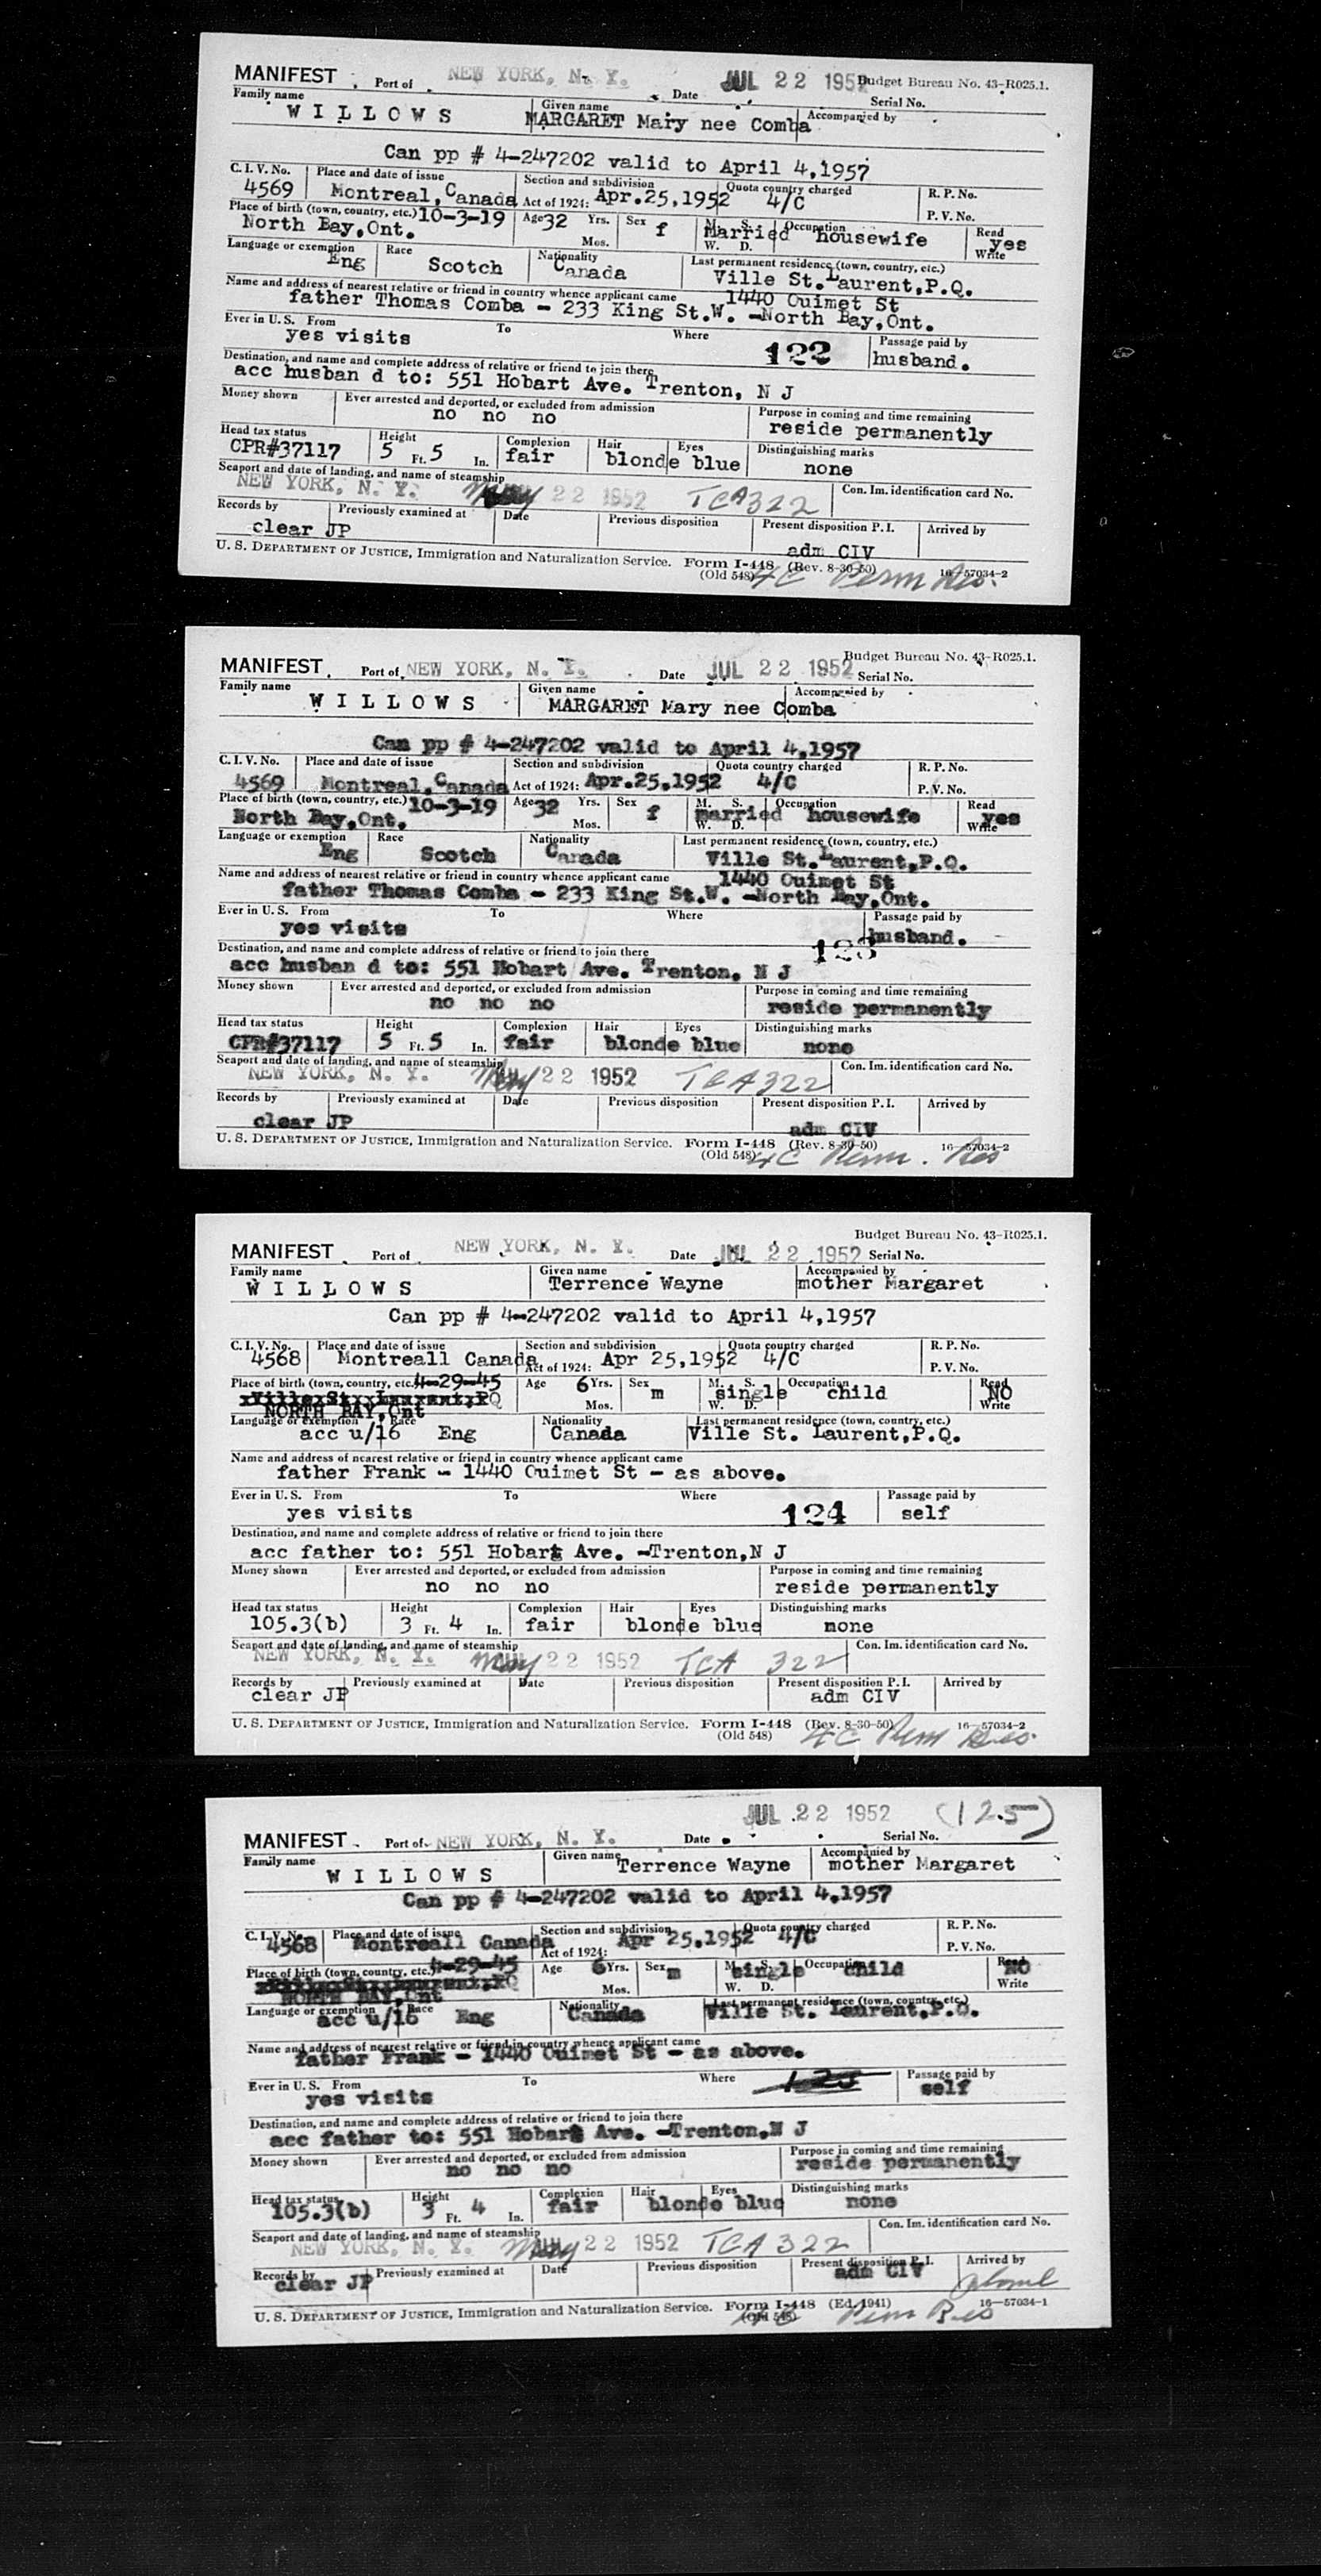 Budget Bureau No. 43-R025.1.
MANIFEST Port of NEW YORK, N. Y. Date JUL 22 1952 Serial No.
Family name Given name Accompanied by
W I L L O W S MARGARET Mary nee Comba
Can pp # 4-247202 valid to April 4,1957
C. I. V. No. Place and date of issue Section and subdivision Quota country charged R. P. No.
4569 Montreal,Canada Act of 1924: Apr.25,1952 4/C P. V. No.
Place of birth (town, country, etc.) 10-3-19 Age 32 Yrs. Sex f M. S. Married Occupation housewife Read yes
North Bay,Ont. Mos. W. D. Write
Language or exemption Race Nationality Last permanent residence (town, country, etc.)
Eng Scotch Canada Ville St.Laurent,P.Q.
Name and address of nearest relative or friend in country whence applicant came 1440 Ouimet St
father Thomas Comba - 233 King St.W. -North Bay,Ont.
Ever in U. S. From To Where Passage paid by
yes visits 122 husband.
Destination, and name and complete address of relative or friend to join there
acc husban d to: 551 Hobart Ave. Trenton, N J
Money shown Ever arrested and deported, or excluded from admission Purpose in coming and time remaining
no no no reside permanently
Head tax status Height Complexion Hair Eyes Distinguishing marks
CPR#37117 5 Ft. 5 In. fair blonde blue none
Seaport and date of landing, and name of steamship Con. Im. identification card No.
NEW YORK, N. Y. May 22 1952 TCA322
Records by Previously examined at Date Previous disposition Present disposition P. I. Arrived by
clear JP adm CIV
U. S. DEPARTMENT OF JUSTICE, Immigration and Naturalization Service. Form I-448 (Rev. 8-30-50) 16—57034-2
(Old 548) 4C Perm Res.
Budget Bureau No. 43-R025.1.
MANIFEST Port of NEW YORK, N. Y. Date JUL 22 1952 Serial No.
Family name Given name Accompanied by
W I L L O W S MARGARET Mary nee Comba
Can pp # 4-247202 valid to April 4,1957
C. I. V. No. Place and date of issue Section and subdivision Quota country charged R. P. No.
4569 Montreal,Canada Act of 1924: Apr.25,1952 4/C P. V. No.
Place of birth (town, country, etc.) 10-3-19 Age 32 Yrs. Sex f M. S. married Occupation housewife Read yes
North Bay,Ont. Mos. W. D. Write
Language or exemption Race Nationality Last permanent residence (town, country, etc.)
Eng Scotch Canada Ville St.Laurent,P.Q.
Name and address of nearest relative or friend in country whence applicant came 1440 Ouimet St
father Thomas Comba - 233 King St.W. -North Bay,Ont.
Ever in U. S. From To Where Passage paid by
yes visits 123 husband.
Destination, and name and complete address of relative or friend to join there
acc husban d to: 551 Hobart Ave. Trenton, N J
Money shown Ever arrested and deported, or excluded from admission Purpose in coming and time remaining
no no no reside permanently
Head tax status Height Complexion Hair Eyes Distinguishing marks
CPR#37117 5 Ft. 5 In. fair blonde blue none
Seaport and date of landing, and name of steamship Con. Im. identification card No.
NEW YORK, N. Y. May 22 1952 TCA322
Records by Previously examined at Date Previous disposition Present disposition P. I. Arrived by
clear JP adm CIV
U. S. DEPARTMENT OF JUSTICE, Immigration and Naturalization Service. Form I-448 (Rev. 8-30-50) 16—57034-2
(Old 548) 4C Perm. Res
Budget Bureau No. 43-R025.1.
MANIFEST Port of NEW YORK, N. Y. Date JUL 22 1952 Serial No.
Family name Given name Accompanied by
W I L L O W S Terrence Wayne mother Margaret
Can pp # 4-247202 valid to April 4,1957
C. I. V. No. Place and date of issue Section and subdivision Quota country charged R. P. No.
4568 Montreall Canada Act of 1924: Apr 25,1952 4/C P. V. No.
Place of birth (town, country, etc.) 4-29-45 Age 6 Yrs. Sex m M. S. single Occupation child Read NO
Ville St. Laurent,PQ Mos. W. D. Write
NORTH BAY,Ont
Language or exemption Race Nationality Last permanent residence (town, country, etc.)
acc u/16 Eng Canada Ville St. Laurent,P.Q.
Name and address of nearest relative or friend in country whence applicant came
father Frank - 1440 Ouimet St - as above.
Ever in U. S. From To Where Passage paid by
yes visits 124 self
Destination, and name and complete address of relative or friend to join there
acc father to: 551 Hobart Ave. -Trenton,N J
Money shown Ever arrested and deported, or excluded from admission Purpose in coming and time remaining
no no no reside permanently
Head tax status Height Complexion Hair Eyes Distinguishing marks
105.3(b) 3 Ft. 4 In. fair blonde blue none
Seaport and date of landing, and name of steamship Con. Im. identification card No.
NEW YORK, N. Y. May 22 1952 TCA 322
Records by Previously examined at Date Previous disposition Present disposition P. I. Arrived by
clear JP adm CIV
U. S. DEPARTMENT OF JUSTICE, Immigration and Naturalization Service. Form I-448 (Rev. 8-30-50) 16—57034-2
(Old 548) 4C Perm Res.
JUL 22 1952 (125)
MANIFEST Port of NEW YORK, N. Y. Date Serial No.
Family name Given name Accompanied by
W I L L O W S Terrence Wayne mother Margaret
Can pp # 4-247202 valid to April 4,1957
C. I. V. No. Place and date of issue Section and subdivision Quota country charged R. P. No.
4568 Montreall Canada Act of 1924: Apr 25,1952 4/C P. V. No.
Place of birth (town, country, etc.) 4-29-45 Age 6 Yrs. Sex m M. S. single Occupation child Read NO
Mos. W. D. Write
NORTH BAY,Ont
Language or exemption Race Nationality Last permanent residence (town, country, etc.)
acc u/16 Eng Canada Ville St. Laurent,P.Q.
Name and address of nearest relative or friend in country whence applicant came
father Frank - 1440 Ouimet St - as above.
Ever in U. S. From To Where Passage paid by
yes visits 125 self
Destination, and name and complete address of relative or friend to join there
acc father to: 551 Hobart Ave. -Trenton,N J
Money shown Ever arrested and deported, or excluded from admission Purpose in coming and time remaining
no no no reside permanently
Head tax status Height Complexion Hair Eyes Distinguishing marks
105.3(b) 3 Ft. 4 In. fair blonde blue none
Seaport and date of landing, and name of steamship Con. Im. identification card No.
NEW YORK, N. Y. May 22 1952 TCA 322
Records by Previously examined at Date Previous disposition Present disposition P. I. Arrived by
clear JP adm CIV
U. S. DEPARTMENT OF JUSTICE, Immigration and Naturalization Service. Form I-448 (Ed. 1941) 16—57034-1
(Old 548) Perm Res